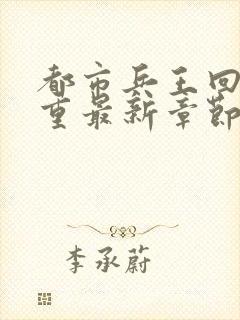 都市兵王回
重最新章節
李承蔚